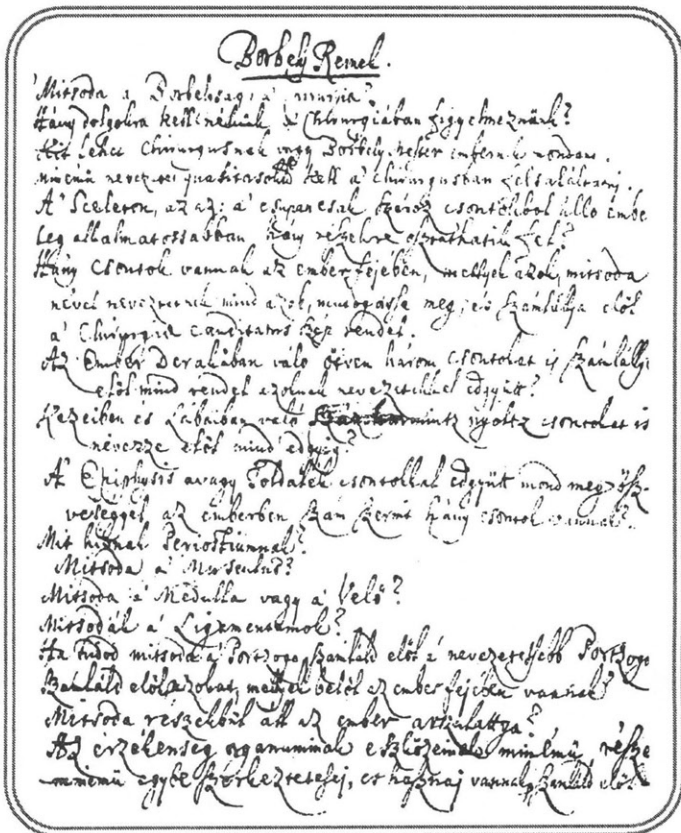 Borbely Remek.
Mitsoda a Borbelysag, a' munkja?
Hány dolgokra kell nékünk a' Chirurgiában figyelmeznünk?
Kit lehet Chirurgusnak vagy Borbély Mester embernek mondani.
minémü nevezetes qualitasoknak kell a' chirurgusban feltaláltatni.
A' Sceleton, az az: a' csupán csak szároz csontokbol allo embe
leg alkalmatossabban hány részekre osztathatik fel?
Hány Csontok vannak az ember fejében, mellyek azok, mitsoda
névvel neveztetnek mind azok, mutogassa meg, és számlálja elöl
a' Chirurgiae Candidatus szép rendel.
Az Ember Derakában való ötven három csontokat is számlállya
elöl mind rendel azoknak nevezetikkel edgyütt?
Kezeiben és Lábaiban való harmintz nyoltz csontokat is
nevezze elöl mind edgyig?
A' Epiphysis avagy Toldalek csontokkal edgyütt mond meg ösz-
veséggel az emberben szám szerint hány csontok vannak?
Mit hivnak Periostiumnak?
Mitsoda a' Musculus?
Mitsoda a' Medulla vagy a' Velö?
Mitsodák a' Ligamentumok?
Ha tudod mitsoda a' Portzogo, számláld elöl a' nevezetesebb Portzogo
Számláld elöl azokat, mellyek belöl az ember fejében vannak?
Mitsoda részekbül áll az ember ortzulattya?
Az érzékenség organuminak eszközeinek minémü része
minémü egybe szerkeztetései, és hasznai vannak, számláld elöl